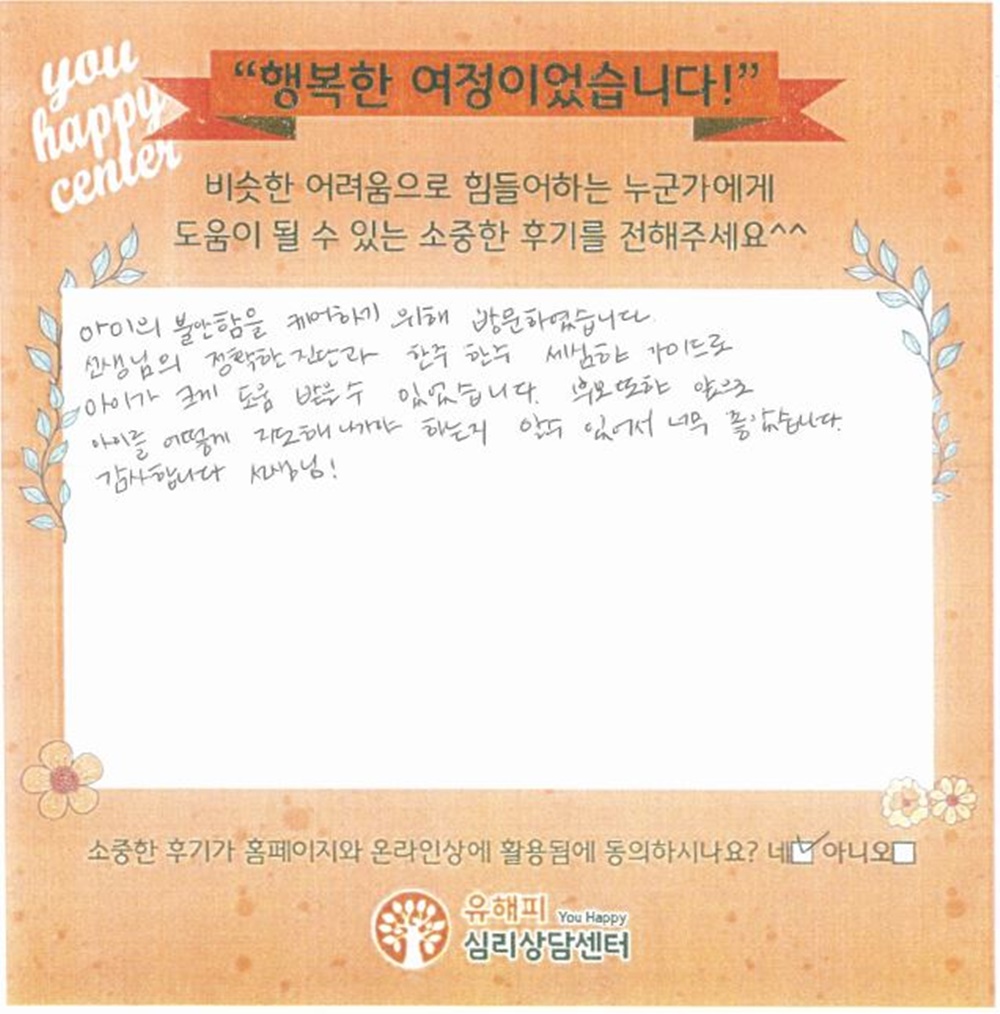 you
happy
center
“행복한 여정이었습니다!”
비슷한 어려움으로 힘들어하는 누군가에게
도움이 될 수 있는 소중한 후기를 전해주세요^^
아이의 불안함을 케어하기 위해 방문하였습니다.
선생님의 정확한 진단과 한주 한주 세심한 가이드로
아이가 크게 도움 받을수 있었습니다. 부모또한 앞으로
아이를 어떻게 지도해나가야 하는지 알수 있어서 너무 좋았습니다.
감사합니다 선생님!
소중한 후기가 홈페이지와 온라인상에 활용됨에 동의하시나요? 네☑ 아니오□
유해피 You Happy
심리상담센터